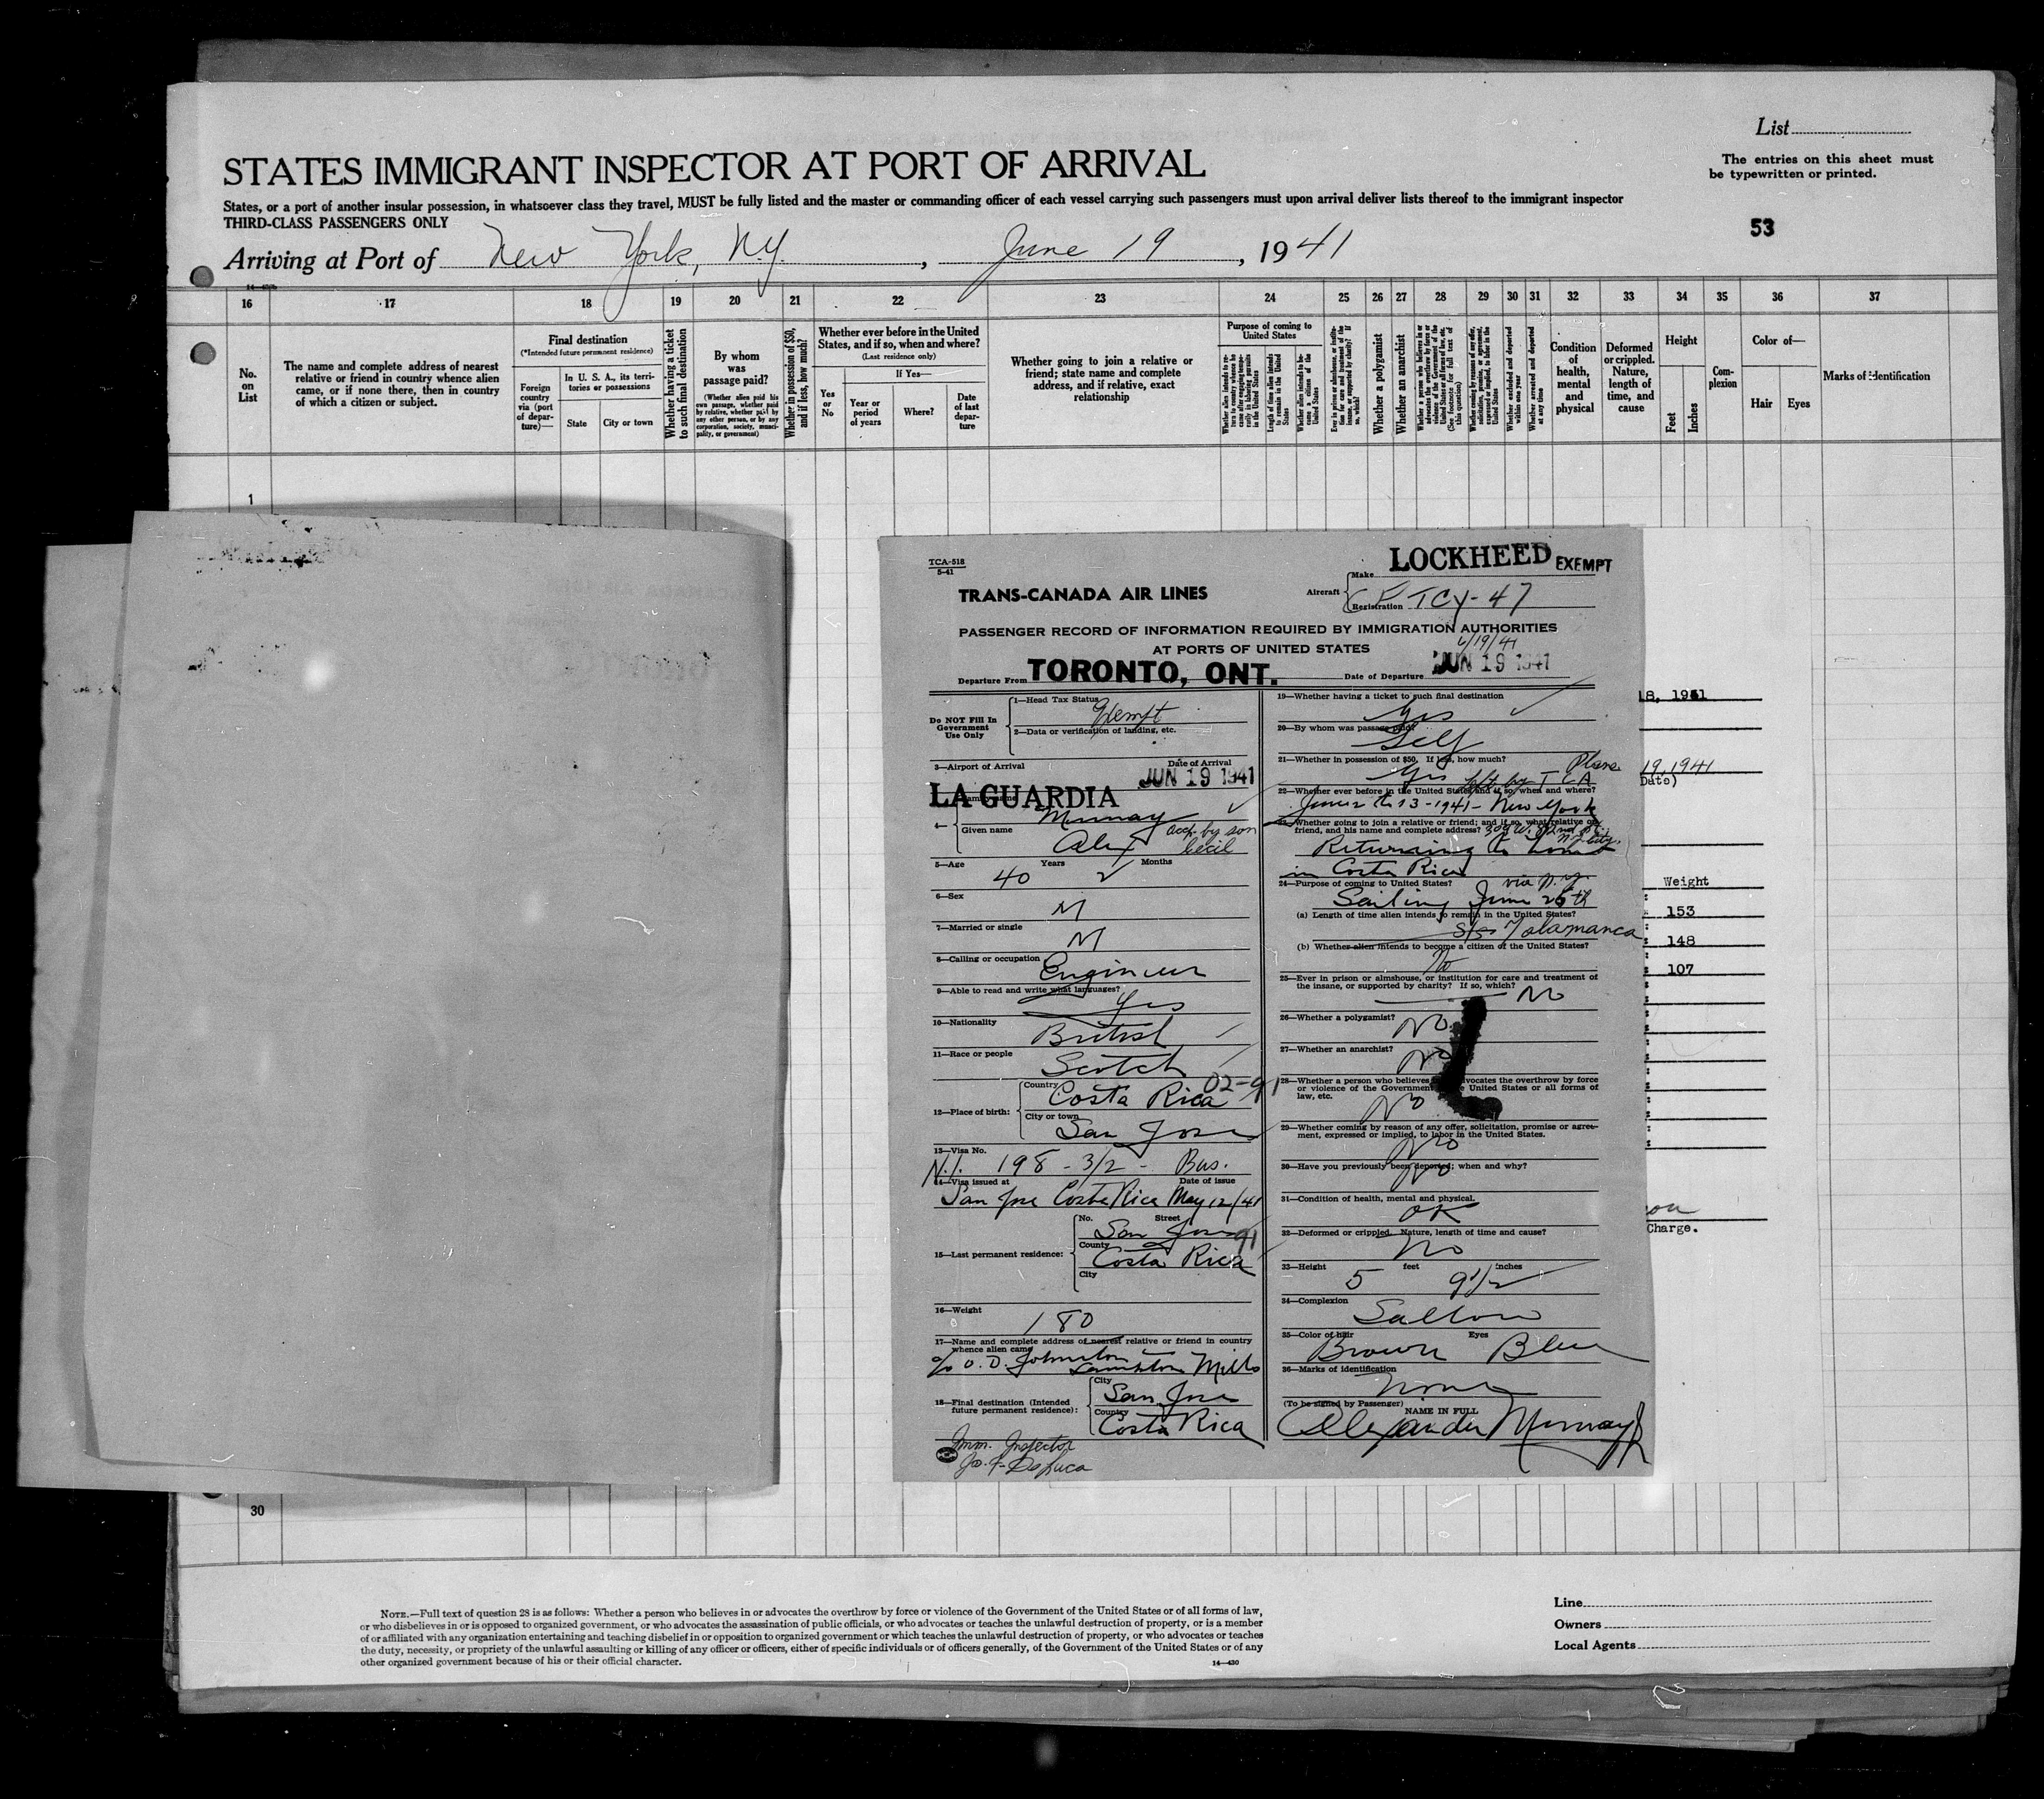 List
STATES IMMIGRANT INSPECTOR AT PORT OF ARRIVAL
The entries on this sheet must
be typewritten or printed.
States, or a port of another insular possession, in whatsoever class they travel, MUST be fully listed and the master or commanding officer of each vessel carrying such passengers must upon arrival deliver lists thereof to the immigrant inspector
THIRD-CLASS PASSENGERS ONLY
53
Arriving at Port of New York, N.Y., June 19, 1941
16 17 18 19 20 21 22 23 24 25 26 27 28 29 30 31 32 33 34 35 36 37
No. on List
The name and complete address of nearest relative or friend in country whence alien came, or if none there, then in country of which a citizen or subject.
Final destination
(*Intended future permanent residence)
Foreign country via (port of departure)—
In U. S. A., its territories or possessions
State
City or town
Whether having a ticket to such final destination
By whom was passage paid?
(Whether alien paid his own passage, whether paid by relative, whether paid by any other person, or by any corporation, society, municipality, or government)
Whether in possession of $50, and if less, how much?
Whether ever before in the United States, and if so, when and where?
(Last residence only)
Yes or No
If Yes—
Year or period of years
Where?
Date of last departure
Whether going to join a relative or friend; state name and complete address, and if relative, exact relationship
Purpose of coming to United States
Whether a polygamist
Whether an anarchist
Condition of health, mental and physical
Deformed or crippled. Nature, length of time, and cause
Height
Feet
Inches
Complexion
Color of—
Hair
Eyes
Marks of identification
1
TCA-518
5-41
LOCKHEED EXEMPT
TRANS-CANADA AIR LINES
Aircraft
Make
Registration CF TCY-47
PASSENGER RECORD OF INFORMATION REQUIRED BY IMMIGRATION AUTHORITIES
AT PORTS OF UNITED STATES
6/19/41
Departure From TORONTO, ONT. Date of Departure JUN 19 1941
Do NOT Fill In
Government
Use Only
1—Head Tax Status Exempt
2—Data or verification of landing, etc.
3—Airport of Arrival Date of Arrival
JUN 19 1941
LA GUARDIA
4— Murray
Given name Alex accp. by son Cecil
5—Age 40 Years 2 Months
6—Sex M
7—Married or single M
8—Calling or occupation Engineer
9—Able to read and write what languages? Yes
10—Nationality British
11—Race or people Scotch
12—Place of birth: Country Costa Rica 02-91
City or town San Jose
13—Visa No. N.I. 198 - 3/2 - Bus.
14—Visa issued at Date of issue
San Jose Costa Rica May 12/41
15—Last permanent residence: No. Street San Jose 91
County Costa Rica
City
16—Weight 180
17—Name and complete address of nearest relative or friend in country
whence alien came
c/o O. D. Johnston Lambton Mills
18—Final destination (Intended
future permanent residence): City San Jose
Country Costa Rica
Imm. Inspector
Jo. F. DeLuca
19—Whether having a ticket to such final destination
Yes
20—By whom was passage paid?
Self
21—Whether in possession of $50. If less, how much?
Yes left by T C A Plane
22—Whether ever before in the United States and if so, when and where?
June 2 to 13-1941 - New York
23—Whether going to join a relative or friend; and if so, what relative or
friend, and his name and complete address? 309 W. 82nd St. N.Y. City.
Returning to home
in Costa Rica
24—Purpose of coming to United States? via N.Y.
Sailing June 26th
(a) Length of time alien intends to remain in the United States?
S/S Talamanca
(b) Whether alien intends to become a citizen of the United States?
No
25—Ever in prison or almshouse, or institution for care and treatment of
the insane, or supported by charity? If so, which?
No
26—Whether a polygamist? No
27—Whether an anarchist? No
28—Whether a person who believes advocates the overthrow by force
or violence of the Government United States or all forms of
law, etc. No
29—Whether coming by reason of any offer, solicitation, promise or agree-
ment, expressed or implied, to labor in the United States.
No
30—Have you previously been deported; when and why?
No
31—Condition of health, mental and physical.
OK
32—Deformed or crippled. Nature, length of time and cause?
No
33—Height 5 feet 9 1/2 inches
34—Complexion Sallow
35—Color of hair Eyes
Brown Blue
36—Marks of identification
None
(To be signed by Passenger) NAME IN FULL
Alexander Murray
18, 1941
19, 1941
Date)
Weight
153
148
107
Charge.
30
NOTE.—Full text of question 28 is as follows: Whether a person who believes in or advocates the overthrow by force or violence of the Government of the United States or of all forms of law,
or who disbelieves in or is opposed to organized government, or who advocates the assassination of public officials, or who advocates or teaches the unlawful destruction of property, or is a member
of or affiliated with any organization entertaining and teaching disbelief in or opposition to organized government or which teaches the unlawful destruction of property, or who advocates or teaches
the duty, necessity, or propriety of the unlawful assaulting or killing of any officer or officers, either of specific individuals or of officers generally, of the Government of the United States or of any
other organized government because of his or their official character.
14—430
Line
Owners
Local Agents